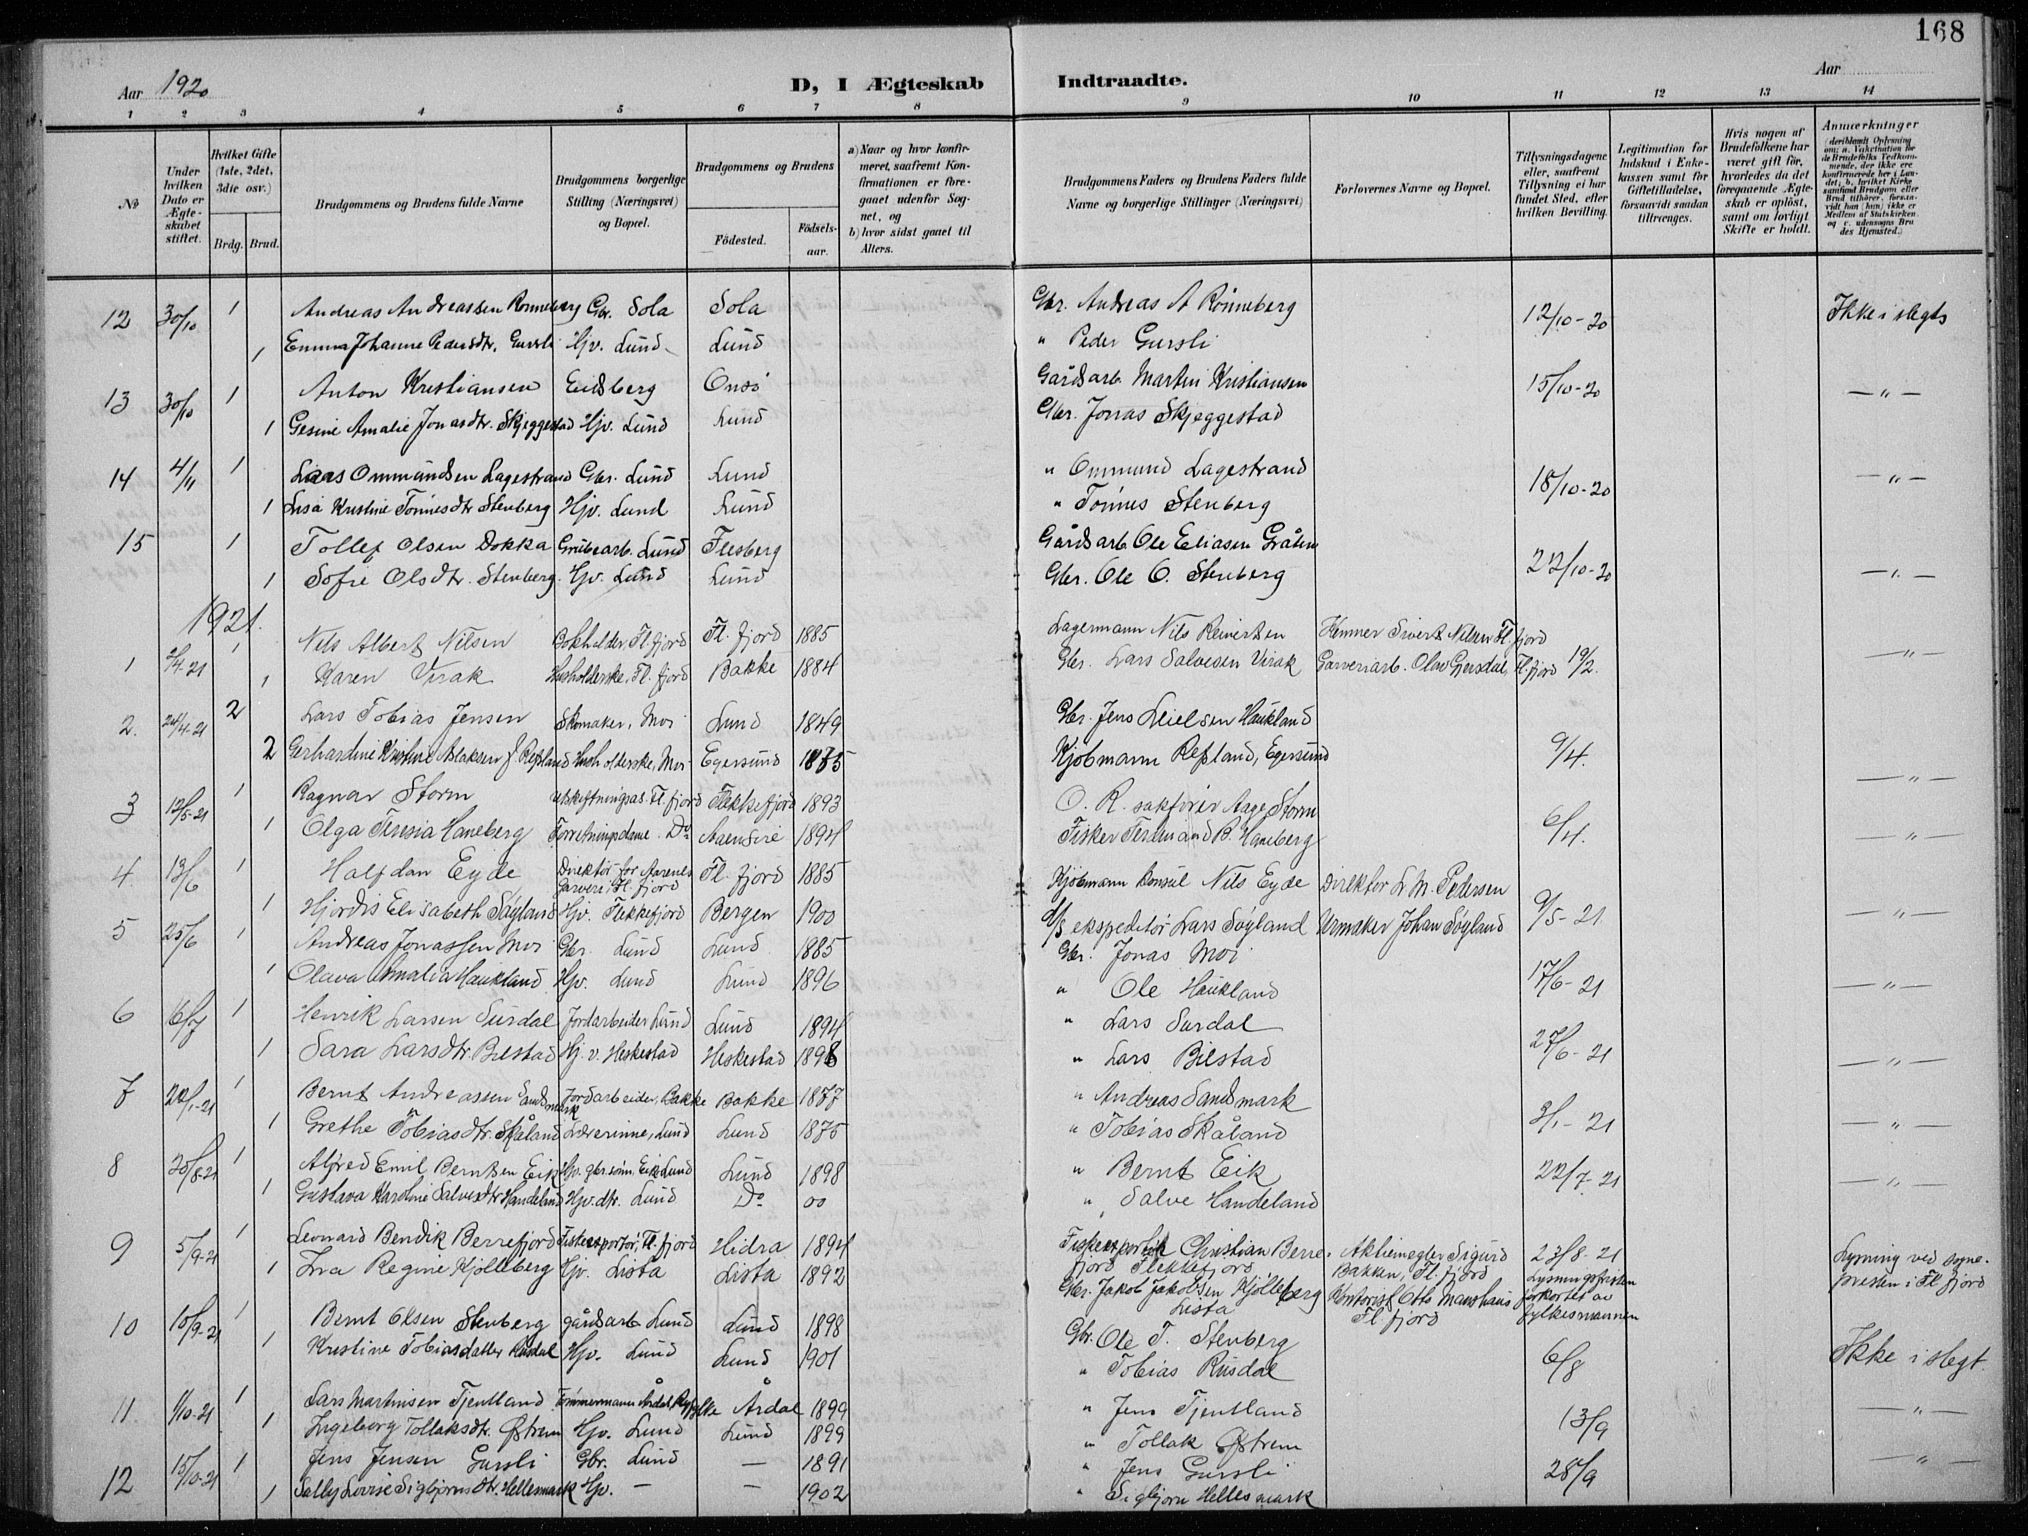 168
Aar 1920
D, I Ægteskab Indtraadte.
Aar
1 2 3 4 5 6 7 8 9 10 11 12 13 14
No
Under hvilken Dato er Ægteskabet stiftet.
Hvilket Gifte (1ste, 2det, 3die osv.)
Brdg. Brud.
Brudgommens og Brudens fulde Navne
Brudgommens borgerlige Stilling (Næringsvei) og Bopæl.
Brudgommens og Brudens
Fødested.
Fødselsaar.
a) Naar og hvor konfirmeret, saafremt Konfirmationen er foregaaet udenfor Sognet, og
b) hvor sidst gaaet til Alters.
Brudgommens Faders og Brudens Faders fulde Navne og borgerlige Stillinger (Næringsvei)
Forlovernes Navne og Bopæl.
Tillysningsdagene eller, saafremt Tillysning ei har fundet Sted, efter hvilken Bevilling.
Legitimation for Indskud i Enkekassen samt for Giftetilladelse, forsaavidt saadan tiltrænges.
Hvis nogen af Brudefolkene har været gift før, hvorledes da det foregaaende Ægteskab er opløst, samt om lovligt Skifte er holdt.
Anmærkninger (deriblandt Oplysning om: a. Vakcination for de Brudefolks Vedkommende, der ikke ere konfirmerede her i Landet; b. hvilket Kirkesamfund Brudgom eller Brud tilhører, forsaavidt han (hun) ikke er Medlem af Statskirken, og c. udensogns Brudes Hjemsted.)
12 30/10 1 Andreas Andreassen Rønneberg Gbr. Sola Sola Gbr. Andreas A Rønneberg 12/10-20 Ikke i slegt
1 Emma Johanne Pedersdtr. Gursli Hjv. Lund Lund " Peder Gursli
13 30/10 1 Anton Kristiansen Eidsberg Onsø Gårdsarb. Martin Kristiansen 15/10-20 — " —
1 Gesine Amalie Jonasdtr. Skjeggestad Hjv. Lund Lund Gbr. Jonas Skjeggestad
14 4/11 1 Lars Ommundsen Lagestrand Gbr. Lund Lund " Ommund Lagestrand 18/10-20 — " —
1 Lisa Kristine Tönnesdtr Stenberg Hjv. Lund Lund " Tönnes Stenberg
15 1 Tollef Olsen Dokka Grubearb. Lund Flesberg Gårdsarb. Ole Eliasen Gråten 22/10-20 — " —
1 Sofie Olsdtr. Stenberg Hjv. Lund Lund Gbr. Ole O. Stenberg
1921.
1 2/4-21 1 Nils Albert Nilsen Bokholder, Fl. fjord Fl. fjord 1885 Lagermann Nils Reinertsen Sivert Nilsen Fl. fjord — " —
1 Karen Virak Husholderske, Fl. fjord Bakke 1884 Gbr. Lars Salvesen Virak Garveriarb. Olav Gjersdal, Fl. fjord 19/2.
2. 24/4-21 2 Lars Tobias Jensen Skomaker, Moi Lund 1849 Gbr. Jens Haukland 9/4. — " —
2 Gerhardine Kristine Aslaksen f. Refsland Husholderske, Moi Egersund 1875 Kjöbmann Refsland, Egersund
3 12/5-21 1 Ragnar Storm Utskiftningsas. Fl. fjord Flekkefjord 1893 O. R. sakförer Aage Storm 6/4. — " —
1 Olga Teresia Haneberg Forretningsdame. Do Aaensire 1894 Fisker Ferdinand B. Haneberg
4. 13/6 1 Halfdan Eyde Direktör for Aarenes Garveri, Fl. fjord Fl. fjord 1885 Kjöbmann Konsul Nils Eyde Direktör L. M. Pedersen 9/5-21 — " —
1 Hjördis Elisabeth Söyland Hjv. Flekkefjord Bergen 1900 d/s ekspeditör Lars Söyland Urmaker Johan Söyland
5 25/6 1 Andreas Jonassen Moi Gbr. Lund Lund 1885 Gbr. Jonas Moi 17/6-21 — " —
1 Olava Amalia Haukland Hjv. Lund Lund 1896 " Ole Haukland
6 16/7 1 Henrik Larsen Surdal Jordarbeider Lund Lund 1894 " Lars Surdal 27/6-21 — " —
1 Sara Larsdtr. Bilstad Hj. v. Heskestad Heskestad 1898 " Lars Bilstad
7 22/1-21 1 Bernt Andreassen Sandsmark Jordarbeider, Bakke Bakke 1877 " Andreas Sandsmark 3/1-21 — " —
1 Grethe Tobiasdtr. Skåland Lærerinne, Lund Lund 1875 " Tobias Skåland
8 20/8-21 1 Alfred Emil Berntsen Eik Hjv. gbr.sönn, Eik Lund Lund 1898 " Bernt Eik 22/7-21 — " —
1 Gustava Karoline Salvesdtr Handeland Hjv. dtr. Lund Do 00 " Salve Handeland
9 5/9-21 1 Leonard Bendik Berrefjord Fiskeexportör, Fl. fjord Hidra 1894 Fiskeexportör Christian Berrefjord Flekkefjord Aktiemegler Sigurd Bakken, Fl. fjord 23/8-21 Lysningsfristen forkortet av fylkesmannen Lysning ved sognepresten i Fl. fjord
1 Regine Kjölleberg Hjv. Lista Lista 1892 Gbr. Jakob Jakobsen Kjölleberg Lista Kontorist Otto Fl. fjord
10 10/9-21 1 Bernt Olsen Stenberg gårdsarb Lund Lund 1898 Gbr. Ole T. Stenberg 6/8 Ikke i slegt.
1 Kristine Tobiasdatter Rusdal Hjv. Lund Lund 1901 " Tobias Rusdal
11. 1/10-21 1 Lars Martinsen Tjentland Tömmermann Årdal Ryfylke Årdal 1899 " Jens Tjentland 13/9 — " —
1 Ingeborg Tollaksdtr. Østrem Hjv. Lund Lund 1899 " Tollak Østrem
12 15/10-21 1 Jens Jensen Gursli Gbr. Lund — 1891 " Jens Gursli 28/9 — " —
1 Sally Lovise Sigbjørnsdtr. Hellesmark Hjv. — — 1902 " Sigbjørn Hellesmark